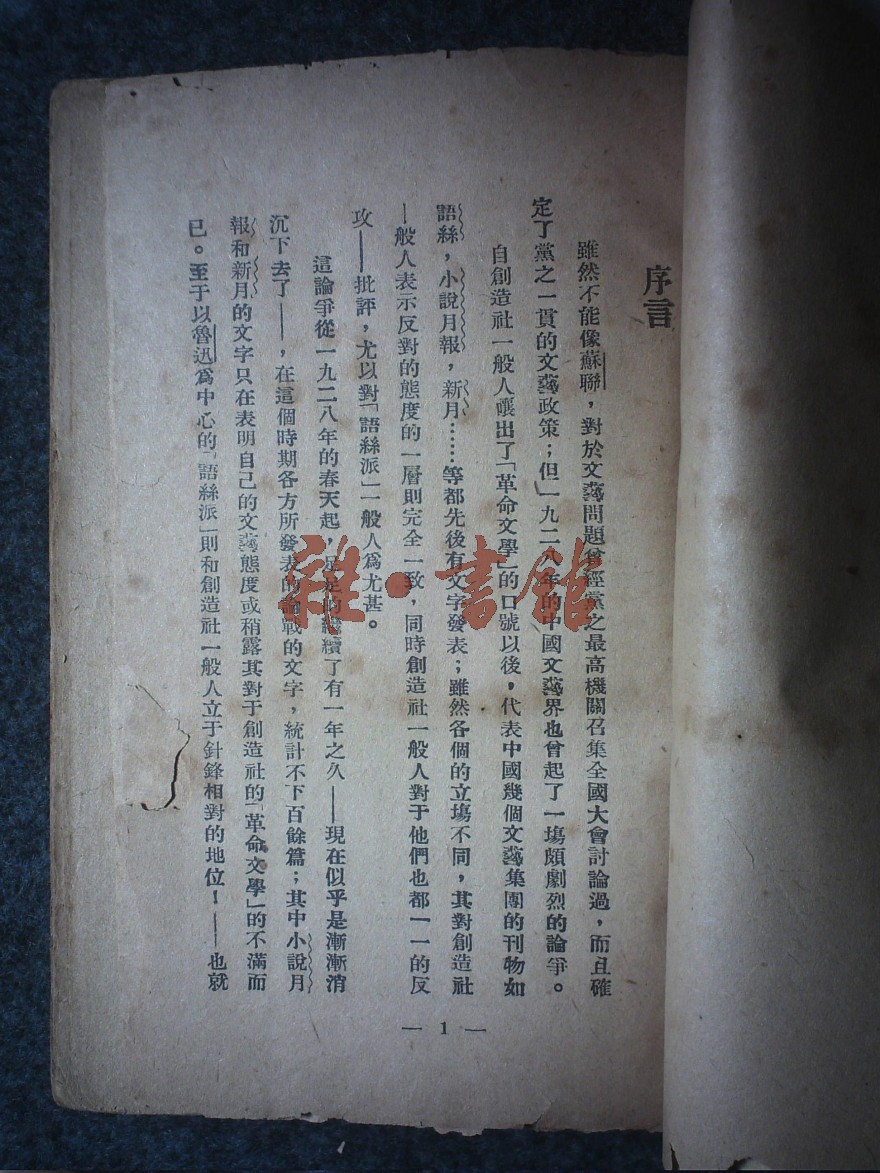 序言
雖然不能像蘇聯，對於文藝問題曾經黨之最高機關召集全國大會討論過，而且確
定了黨之一貫的文藝政策；但一九二八年的中國文藝界也曾起了一場頗劇烈的論爭。
自創造社一般人嚷出了「革命文學」的口號以後，代表中國幾個文藝集團的刊物如
語絲，小說月報，新月……等都先後有文字發表；雖然各個的立場不同，其對創造社
一般人表示反對的態度的一層則完全一致，同時創造社一般人對于他們也都一一的反
攻——批評，尤以對「語絲派」一般人爲尤甚。
這論爭從一九二八年的春天起，足足的繼續了有一年之久——現在似乎是漸漸消
沉下去了——，在這個時期各方所發表的論戰的文字，統計不下百餘篇；其中小說月
報和新月的文字只在表明自己的文藝態度或稍露其對于創造社的「革命文學」的不滿而
已。至于以魯迅爲中心的「語絲派」則和創造社一般人立于針鋒相對的地位！——也就
— 1 —
雜·書館